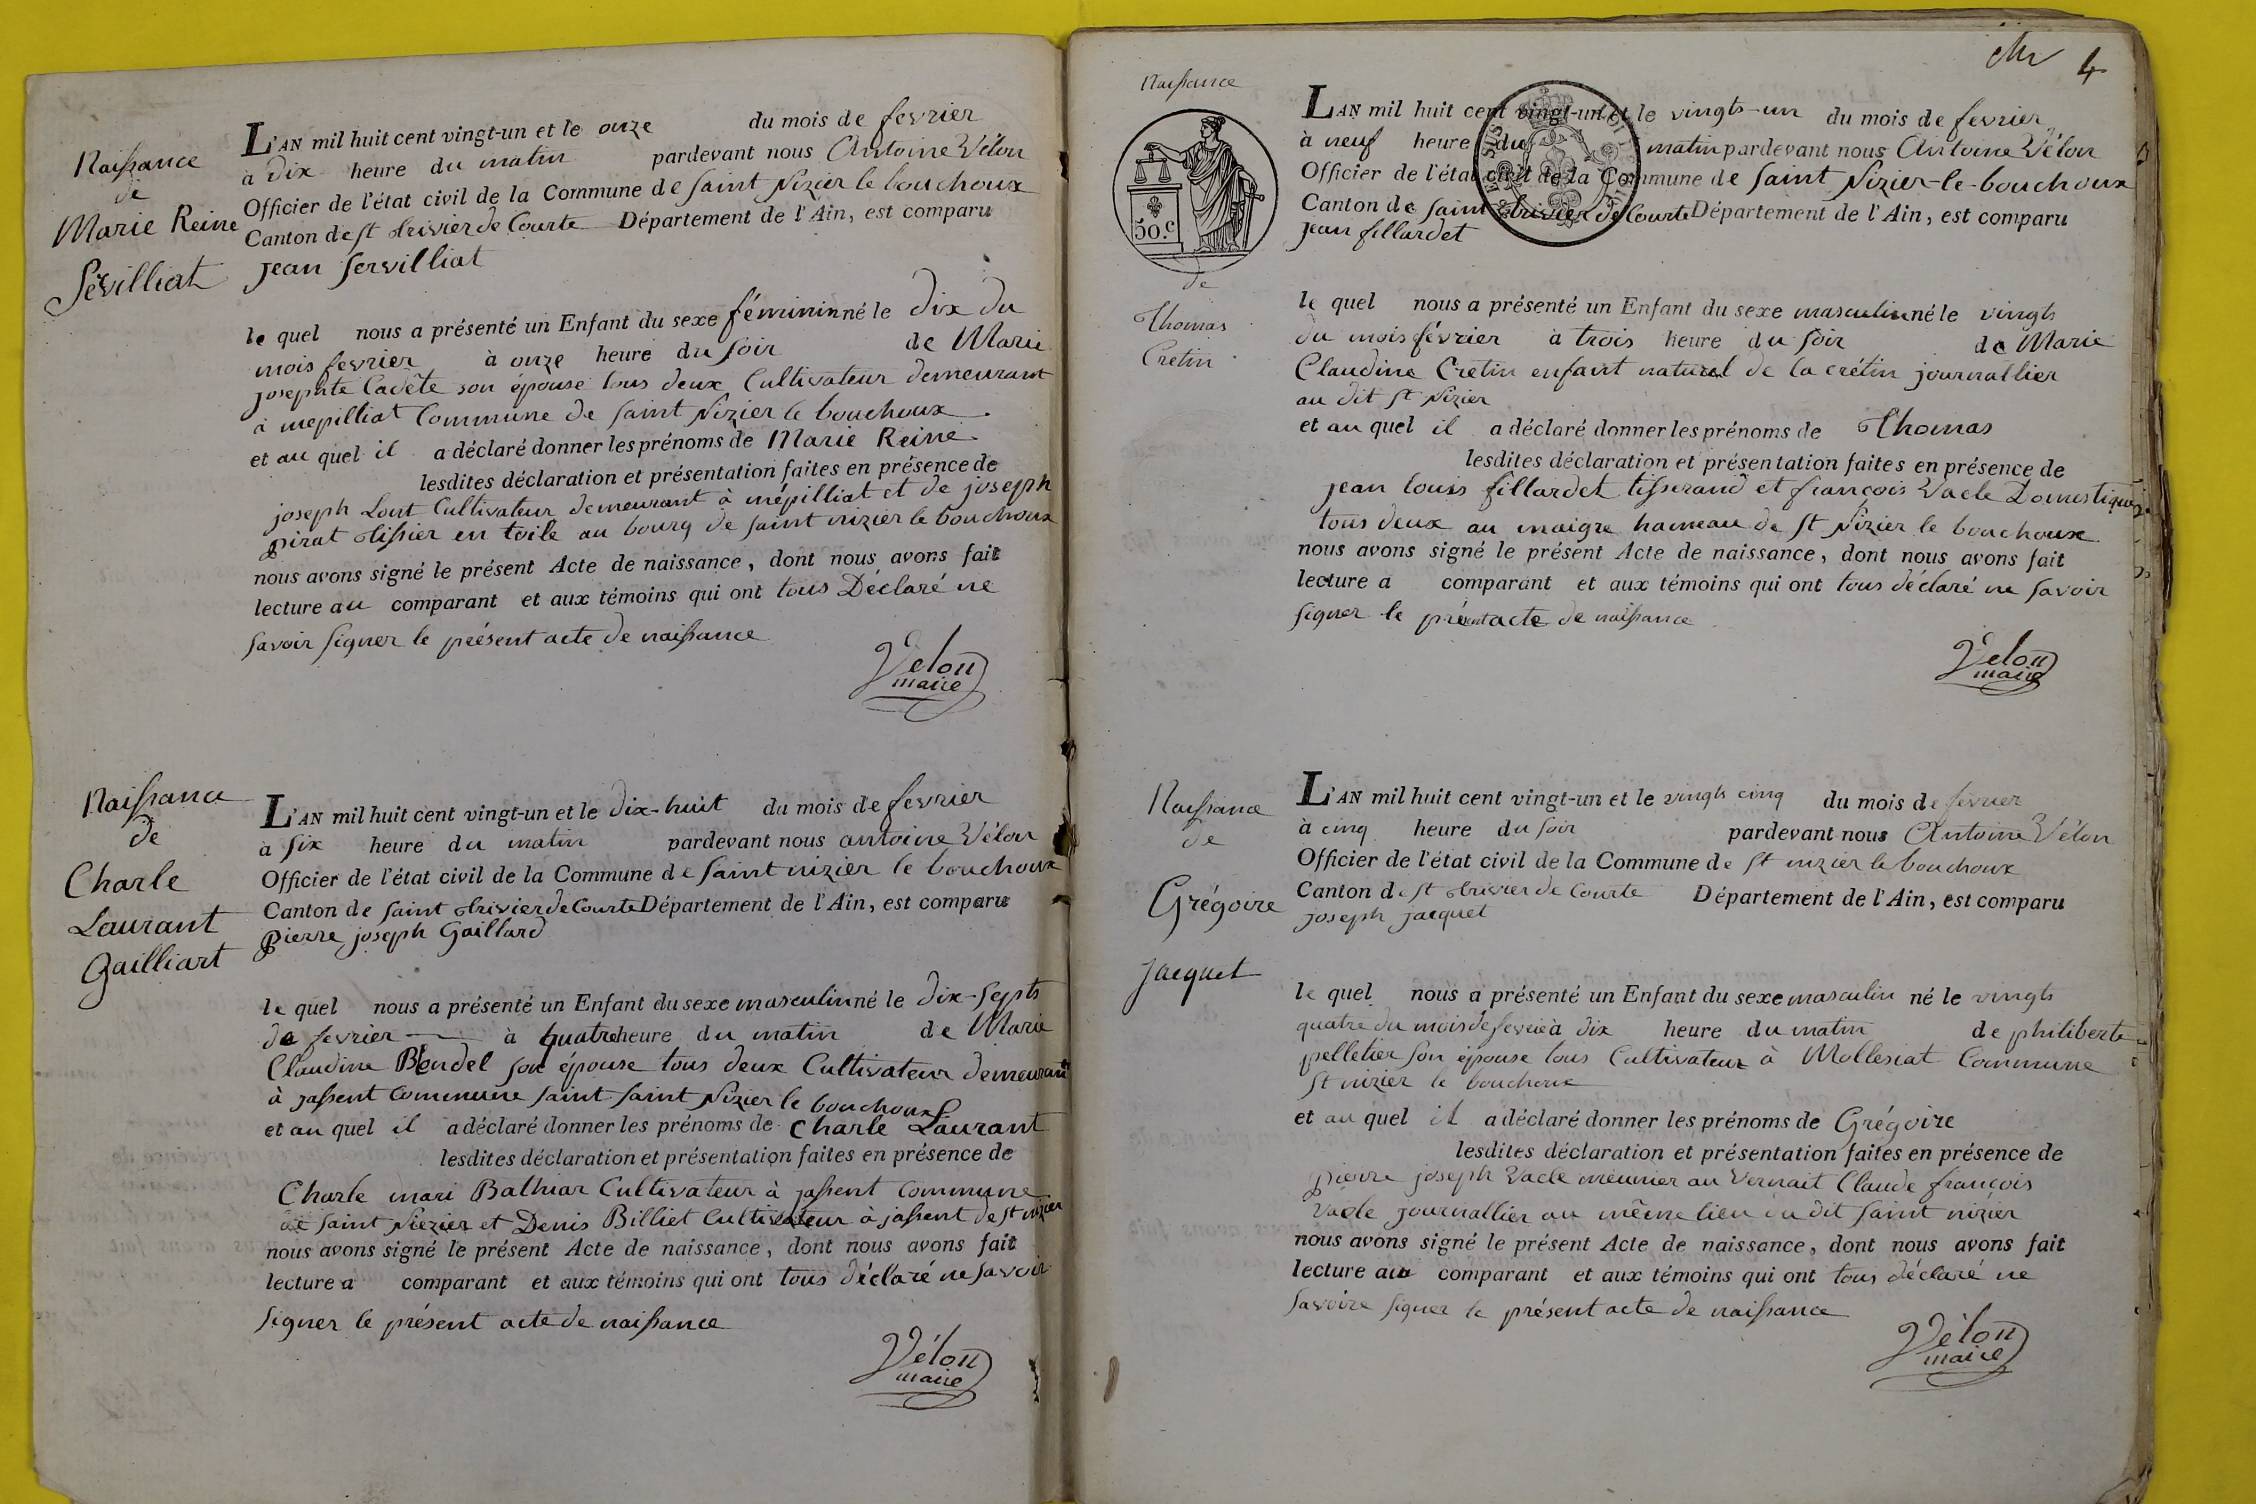 Naissance
de
Marie Reine
Servilliat
L'AN mil huit cent vingt-un et le onze du mois de fevrier
à dix heure du matin pardevant nous Antoine Vélon
Officier de l'état civil de la Commune de saint Nizier le bouchoux
Canton de st trivier de Courte Département de l'Ain, est comparu
jean servilliat
le quel nous a présenté un Enfant du sexe féminin né le dix du
mois fevrier à onze heure du soir de Marie
josephte Cadête son épouse tous deux Cultivateur demeurant
à mépilliat Commune de saint Nizier le bouchoux
et au quel il a déclaré donner les prénoms de Marie Reine
lesdites déclaration et présentation faites en présence de
joseph Cultivateur demeurant à mépilliat et de joseph
pirat tissier en toile au bourg de saint nizier le bouchoux
nous avons signé le présent Acte de naissance, dont nous avons fait
lecture au comparant et aux témoins qui ont tous Déclaré ne
savoir signer le présent acte de naissance
Vélon
maire
Naissance
de
Charle
Laurant
Gailliart
L'AN mil huit cent vingt-un et le dix-huit du mois de fevrier
à six heure du matin pardevant nous antoine Vélon
Officier de l'état civil de la Commune de saint nizier le bouchoux
Canton de saint trivier de Courte Département de l'Ain, est comparu
pierre joseph Gaillard
le quel nous a présenté un Enfant du sexe masculin né le dix-septs
de fevrier à quatre heure du matin de Marie
Claudine son épouse tous deux Cultivateur demeurant
à jassent Commune saint saint Nizier le bouchoux
et au quel il a déclaré donner les prénoms de Charle Laurant
lesdites déclaration et présentation faites en présence de
Charle mari Balhiar Cultivateur à jassent commune
de saint Niezier et Denis Billiet Cultivateur à jassent de st nizier
nous avons signé le présent Acte de naissance, dont nous avons fait
lecture a comparant et aux témoins qui ont tous déclaré ne savoir
signer le présent acte de naissance
Vélon
maire
4
Naissance
50.c
de
Thomas
Cretin
L'AN mil huit cent vingt-un et le vingts-un du mois de fevrier
à neuf heure du matin pardevant nous Antoine Vélon
Officier de l'état civil de la Commune de saint Nizier-le-bouchoux
Canton de saint trivier de Courte Département de l'Ain, est comparu
jean fillardet
le quel nous a présenté un Enfant du sexe masculin né le vingts
du mois février à trois heure du soir de Marie
Claudine Cretin enfant naturel de la crétin journallier
au dit st Nizier
et au quel il a déclaré donner les prénoms de Thomas
lesdites déclaration et présentation faites en présence de
jean louis fillardet tisserand et françois Vacle Domestique
tous deux au maigre hameau de st Nizier le bouchoux
nous avons signé le présent Acte de naissance, dont nous avons fait
lecture a comparant et aux témoins qui ont tous déclaré ne savoir
signer le présent acte de naissance
Vélon
maire
Naissance
de
Grégoire
jacquet
L'AN mil huit cent vingt-un et le vingts cinq du mois de février
à cinq heure du soir pardevant nous Antoine Vélon
Officier de l'état civil de la Commune de st nizier le bouchoux
Canton de st trivier de Courte Département de l'Ain, est comparu
joseph jacquet
le quel nous a présenté un Enfant du sexe masculin né le vingts
quatre du mois de fevrie à dix heure du matin de philiberte
pelletier son épouse tous Cultivateur à Mollesiat Commune
st nizier le bouchoux
et au quel il a déclaré donner les prénoms de Grégoire
lesdites déclaration et présentation faites en présence de
pierre joseph Vacle meunier au Vernait Claude françois
Vacle journallier au même lieu du dit saint nizier
nous avons signé le présent Acte de naissance, dont nous avons fait
lecture au comparant et aux témoins qui ont tous déclaré ne
savoire signer le présent acte de naissance
Vélon
maire